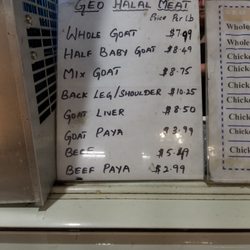 GEO HALAL MEAT
Price Per Lb
WHOLE GOAT $7.99
HALF BABY GOAT $8.49
MIX GOAT $8.75
BACK LEG/SHOULDER $10.25
GOAT LIVER $8.50
GOAT PAYA $3.99
BEEF $5.49
BEEF PAYA $2.99
Whole
Whole
Chick
Chick
Chick
Chick
Chick
Chick